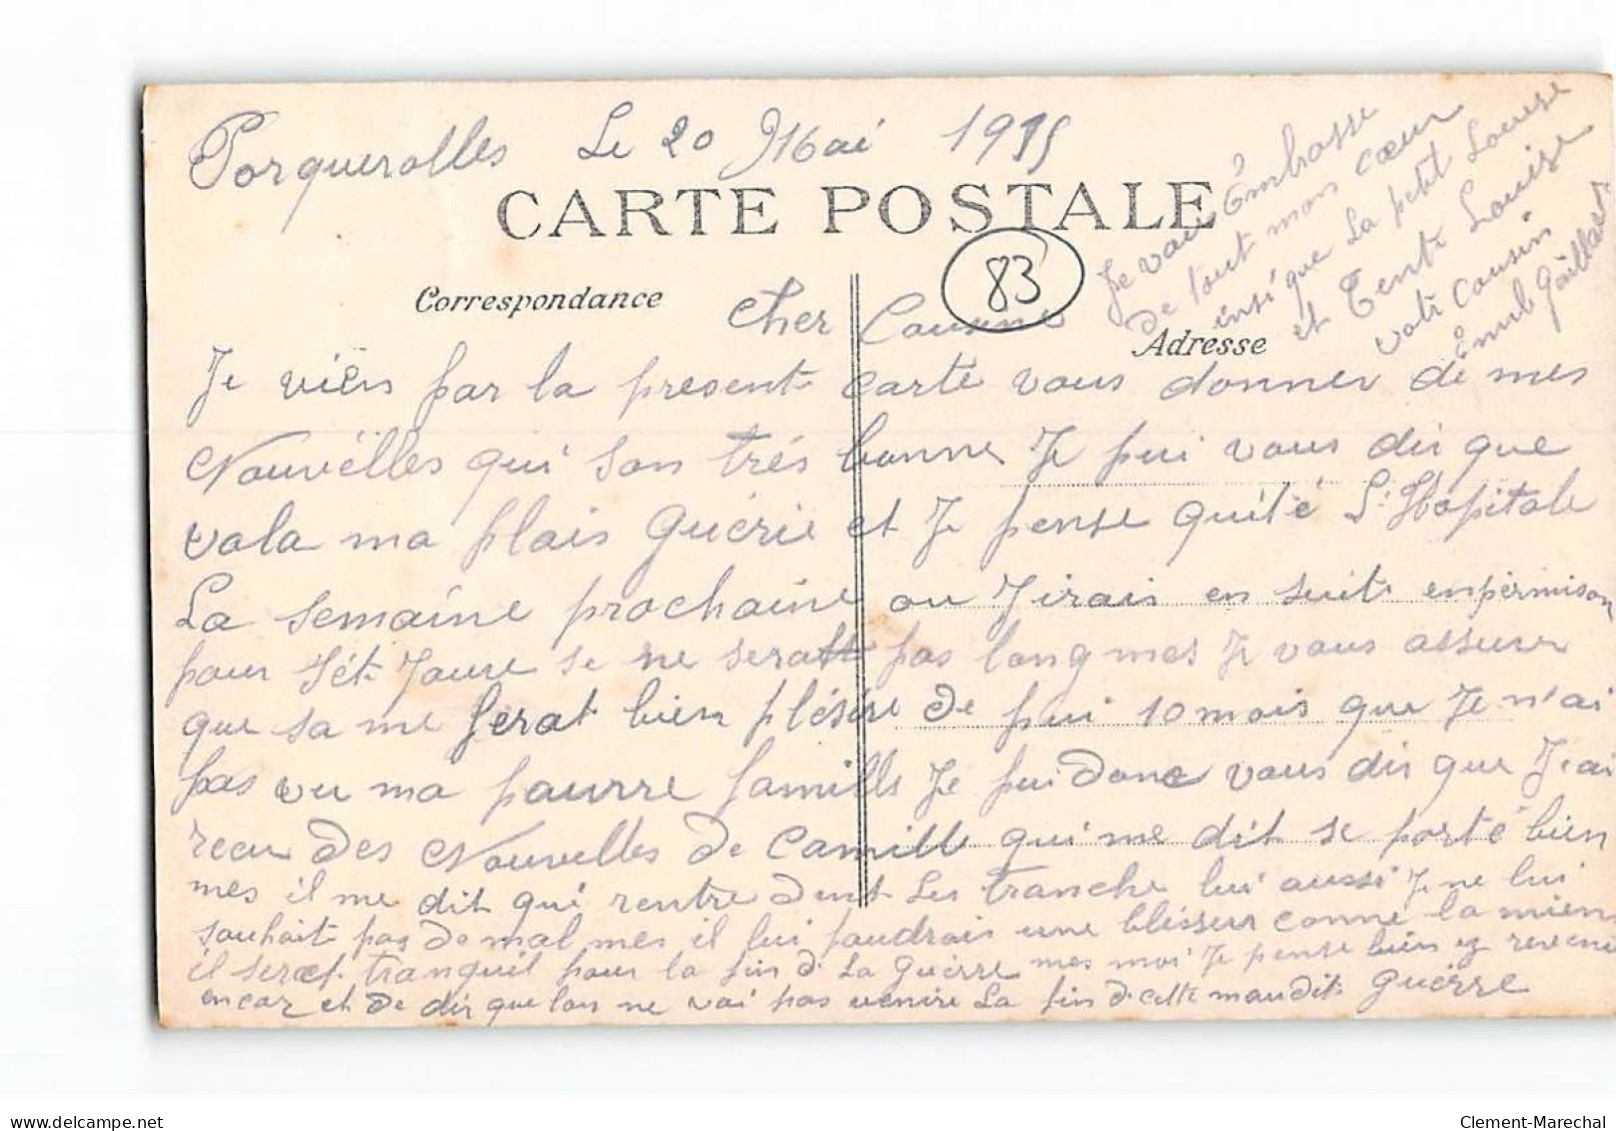 Porquerolles Le 20 Mai 1915
CARTE POSTALE
83
Correspondance
Adresse
Cher Cousine
Je viens par la present carte vous donner de mes
Nouvélles qui son trés bonne Je pui vous dir que
vola ma plais Guérie et Je pense quité L'Hopitale
La semaine prochaine ou J'irais en suite enpermison
pour sét Joure se ne serat pas long mes Je vous assure
que sa me ferat bien plésire De pui 10 mois que Je n'ai
pas vu ma pauvre famille Je pui donc vous dir que J'ai
recu des Nouvelles de Camille qui me dit se porté bien
mes il me dit qui rentre dent Les tranche lui aussi Je ne lui
souhait pas de mal mes il lui faudrais une blésseur comme la mien
il serat tranquil pour la fin de La Guérre mes moi Je pense bien y revenir
encor et de dir que lon ne voi pas venire La fin de cette maudite Guérre
Je vai Embrasse
de tout mon cœur
insi que La petit Louise
et Tente Louise
votre cousin
Emile Gaillard
Clement-Marechal
delcampe.net